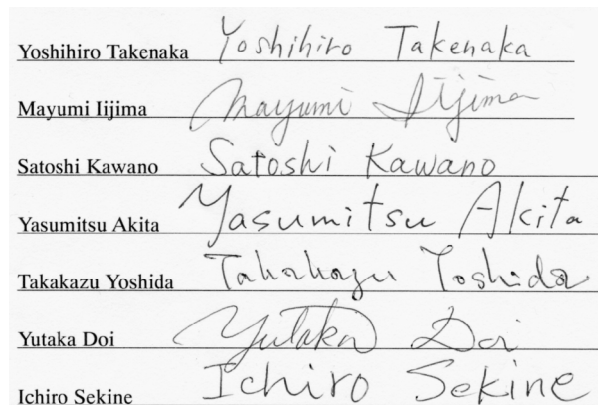 Yoshihiro Takenaka Yoshihiro Takenaka
Mayumi Iijima Mayumi Iijima
Satoshi Kawano Satoshi Kawano
Yasumitsu Akita Yasumitsu Akita
Takakazu Yoshida Takakazu Yoshida
Yutaka Doi Yutaka Doi
Ichiro Sekine Ichiro Sekine